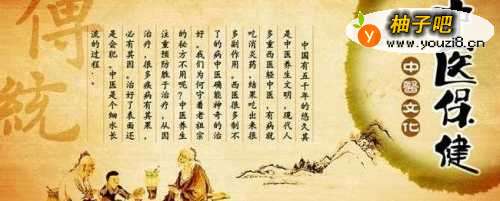 柚子吧
www.youzi8.cn
中医保健
中醫文化
中国有五千年的悠久其
是中医养生文明，现代人
多重西医轻中医，有病就
吃消炎药，结果吃出来很
多副作用。西医很多制不
了的病中医确能神奇的治
好。我们为何守着老祖宗
的秘方不用呢？中医养生
注重预防胜于治疗，从因
治疗，很多疾病有其果，
必有其因。治好了表面还
是会犯。中医是个细水长
流的过程...
傳統